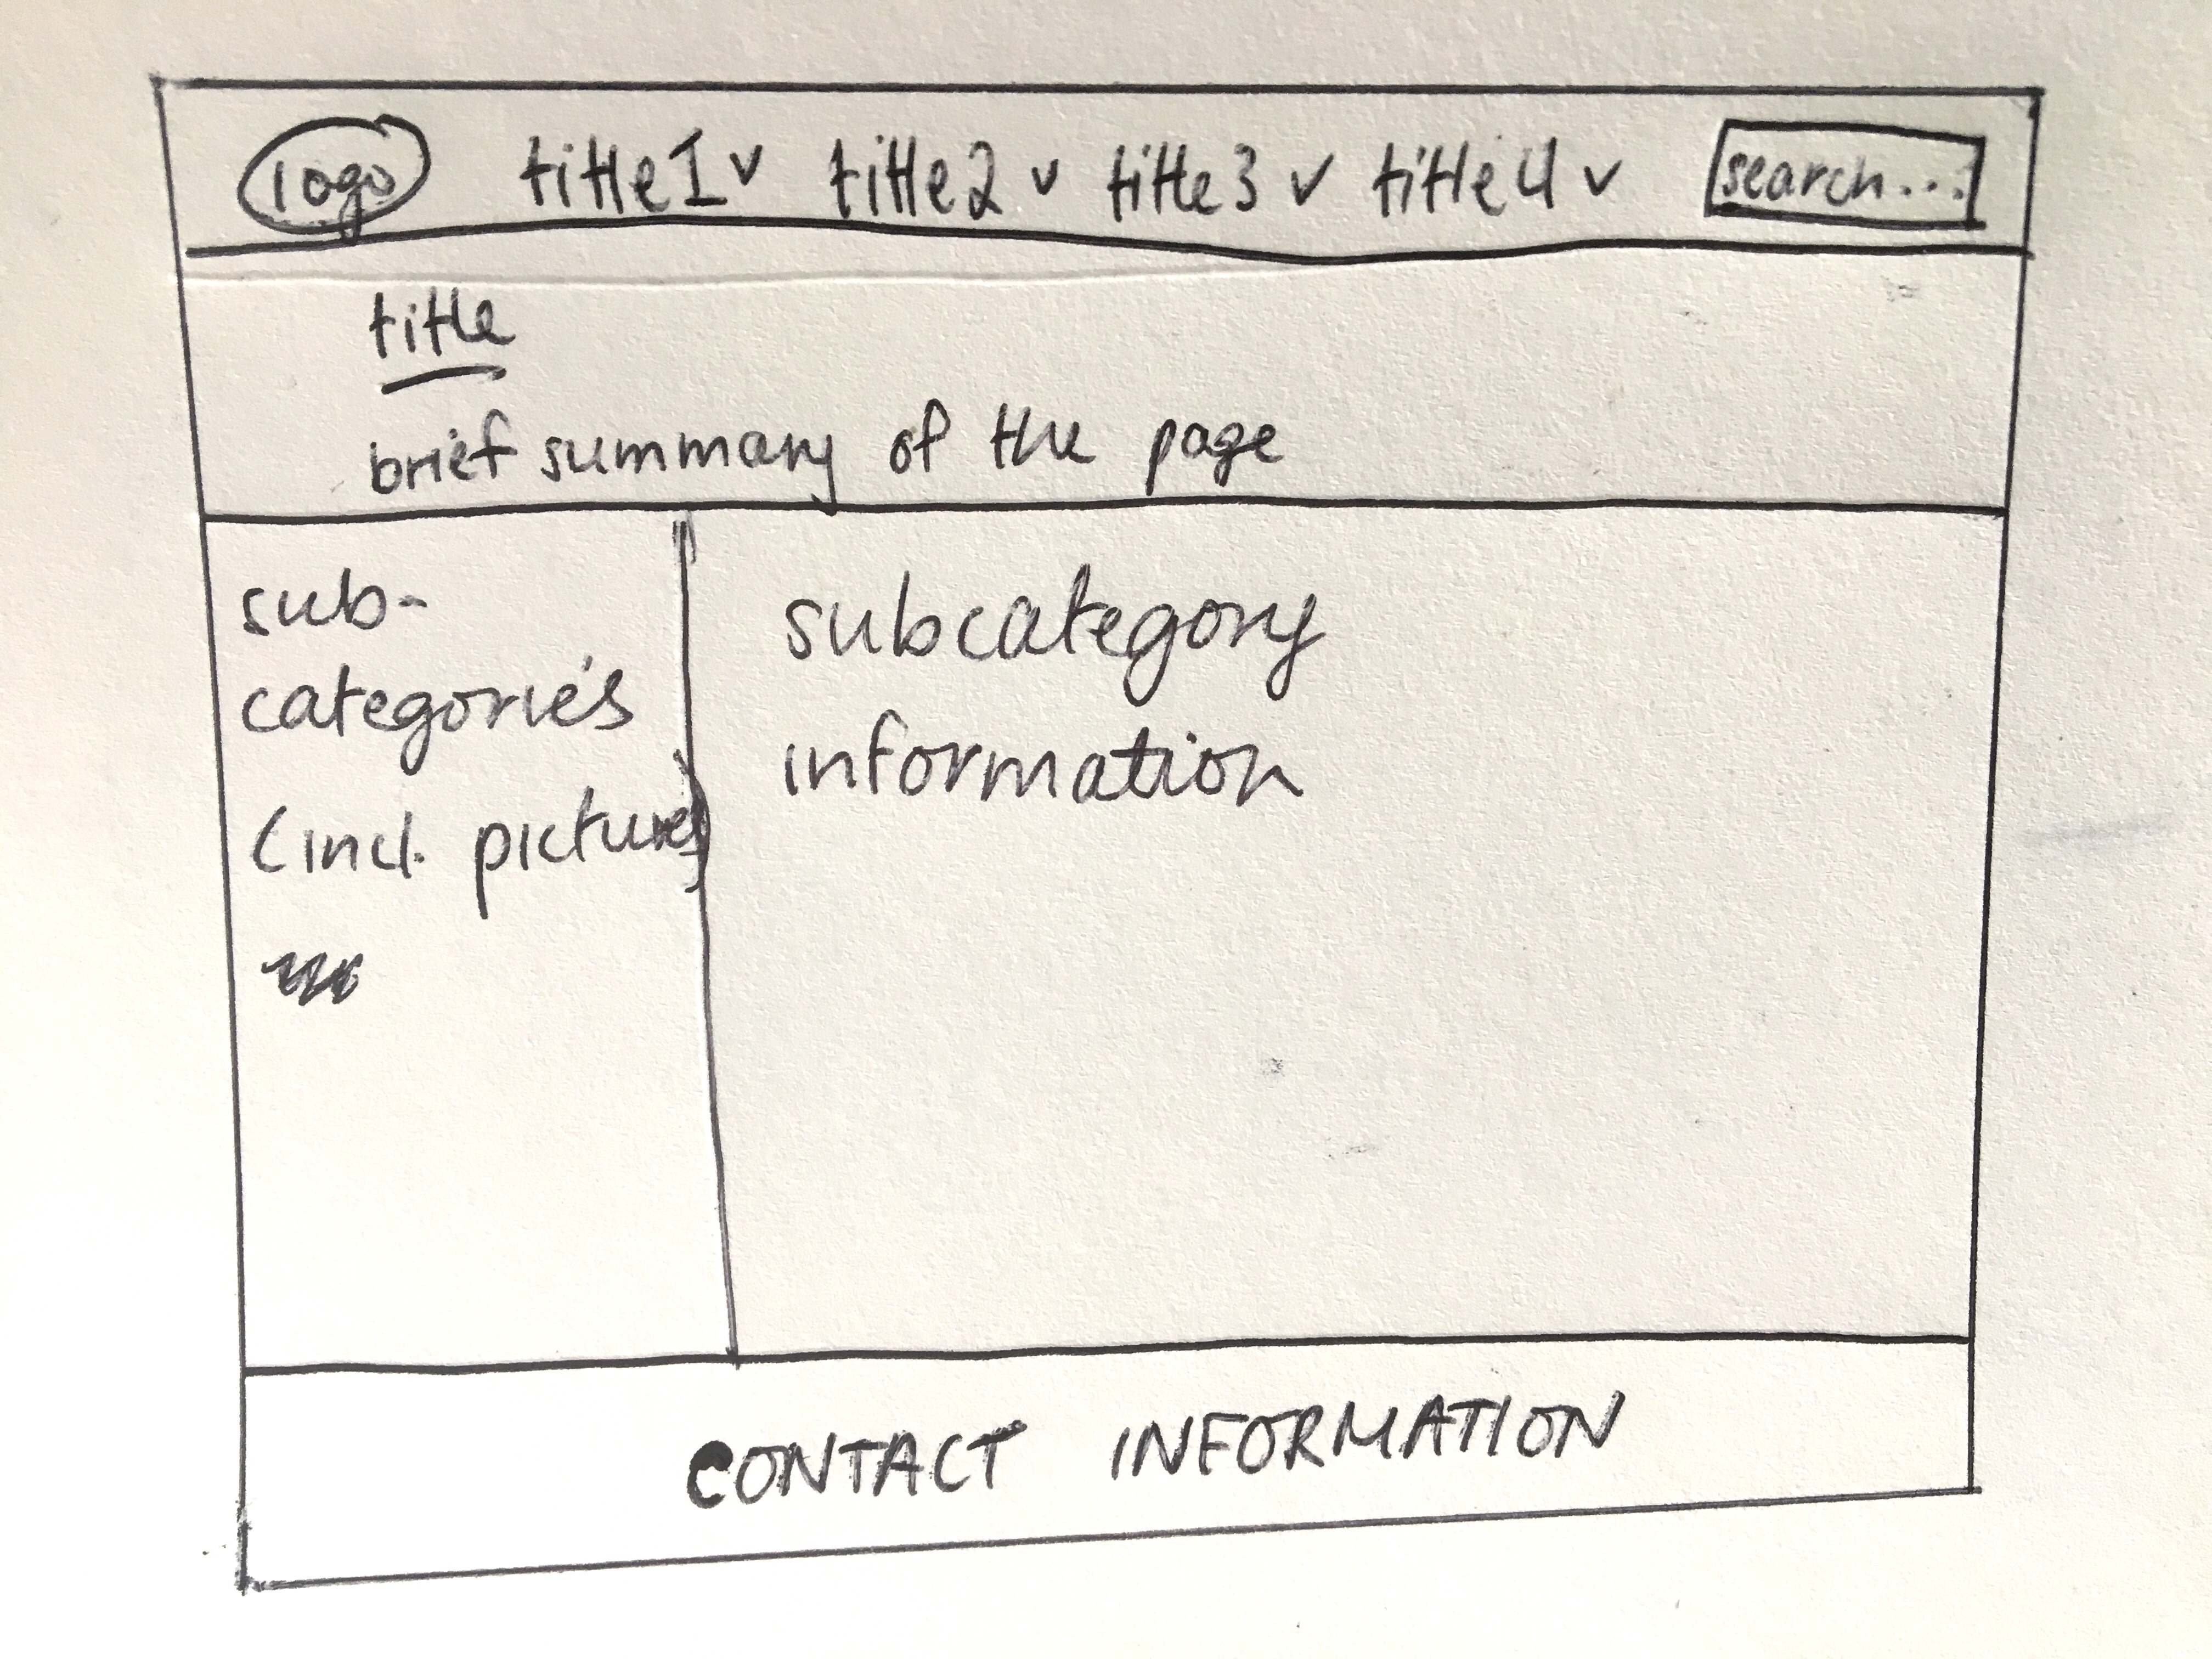 logo title1 v title2 v title3 v title4 v search...
title
brief summary of the page
sub-
categories
(incl. pictures)
subcategory
information
CONTACT INFORMATION